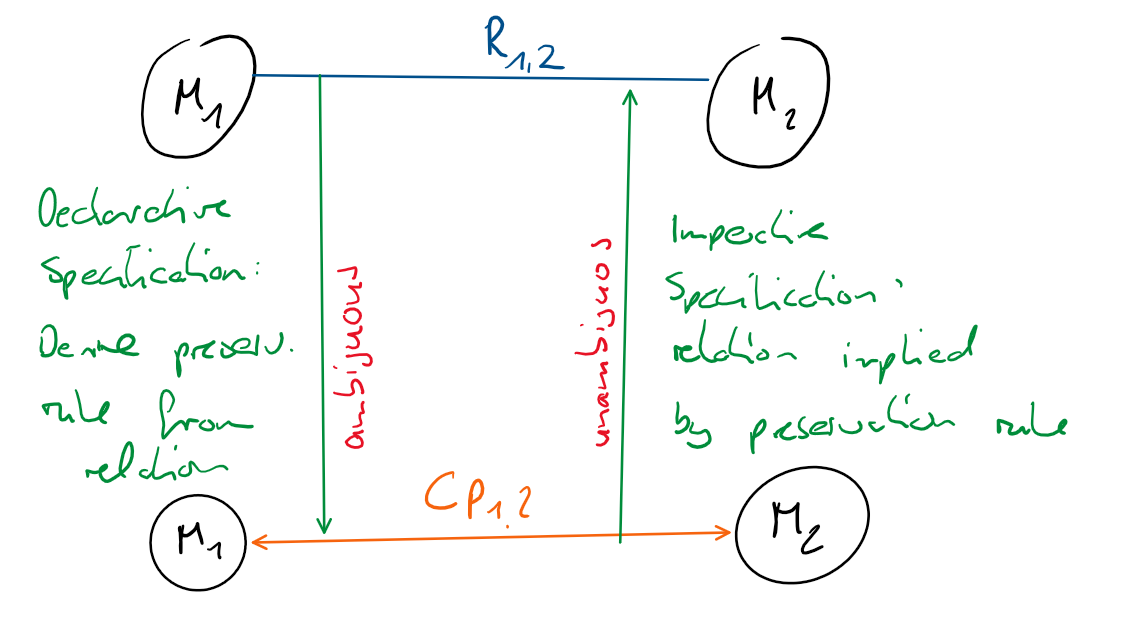 R1,2
M1
M2
Declarative
Specification:
Derive preserv.
rule from
relation
ambijuous
unambijuos
Imperative
Specification:
relation implied
by preservation rule
CP1,2
M1
M2